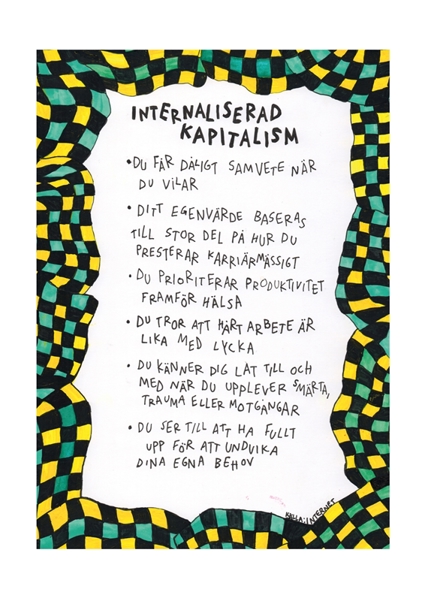 INTERNALISERAD
KAPITALISM
• DU FÅR DÅLIGT SAMVETE NÄR
DU VILAR
• DITT EGENVÄRDE BASERAS
TILL STOR DEL PÅ HUR DU
PRESTERAR KARRIÄRMÄSSIGT
• DU PRIORITERAR PRODUKTIVITET
FRAMFÖR HÄLSA
• DU TROR ATT HÅRT ARBETE ÄR
LIKA MED LYCKA
• DU KÄNNER DIG LAT TILL OCH
MED NÄR DU UPPLEVER SMÄRTA,
TRAUMA ELLER MOTGÅNGAR
• DU SER TILL ATT HA FULLT
UPP FÖR ATT UNDVIKA
DINA EGNA BEHOV
KÄLLA: INTERNET